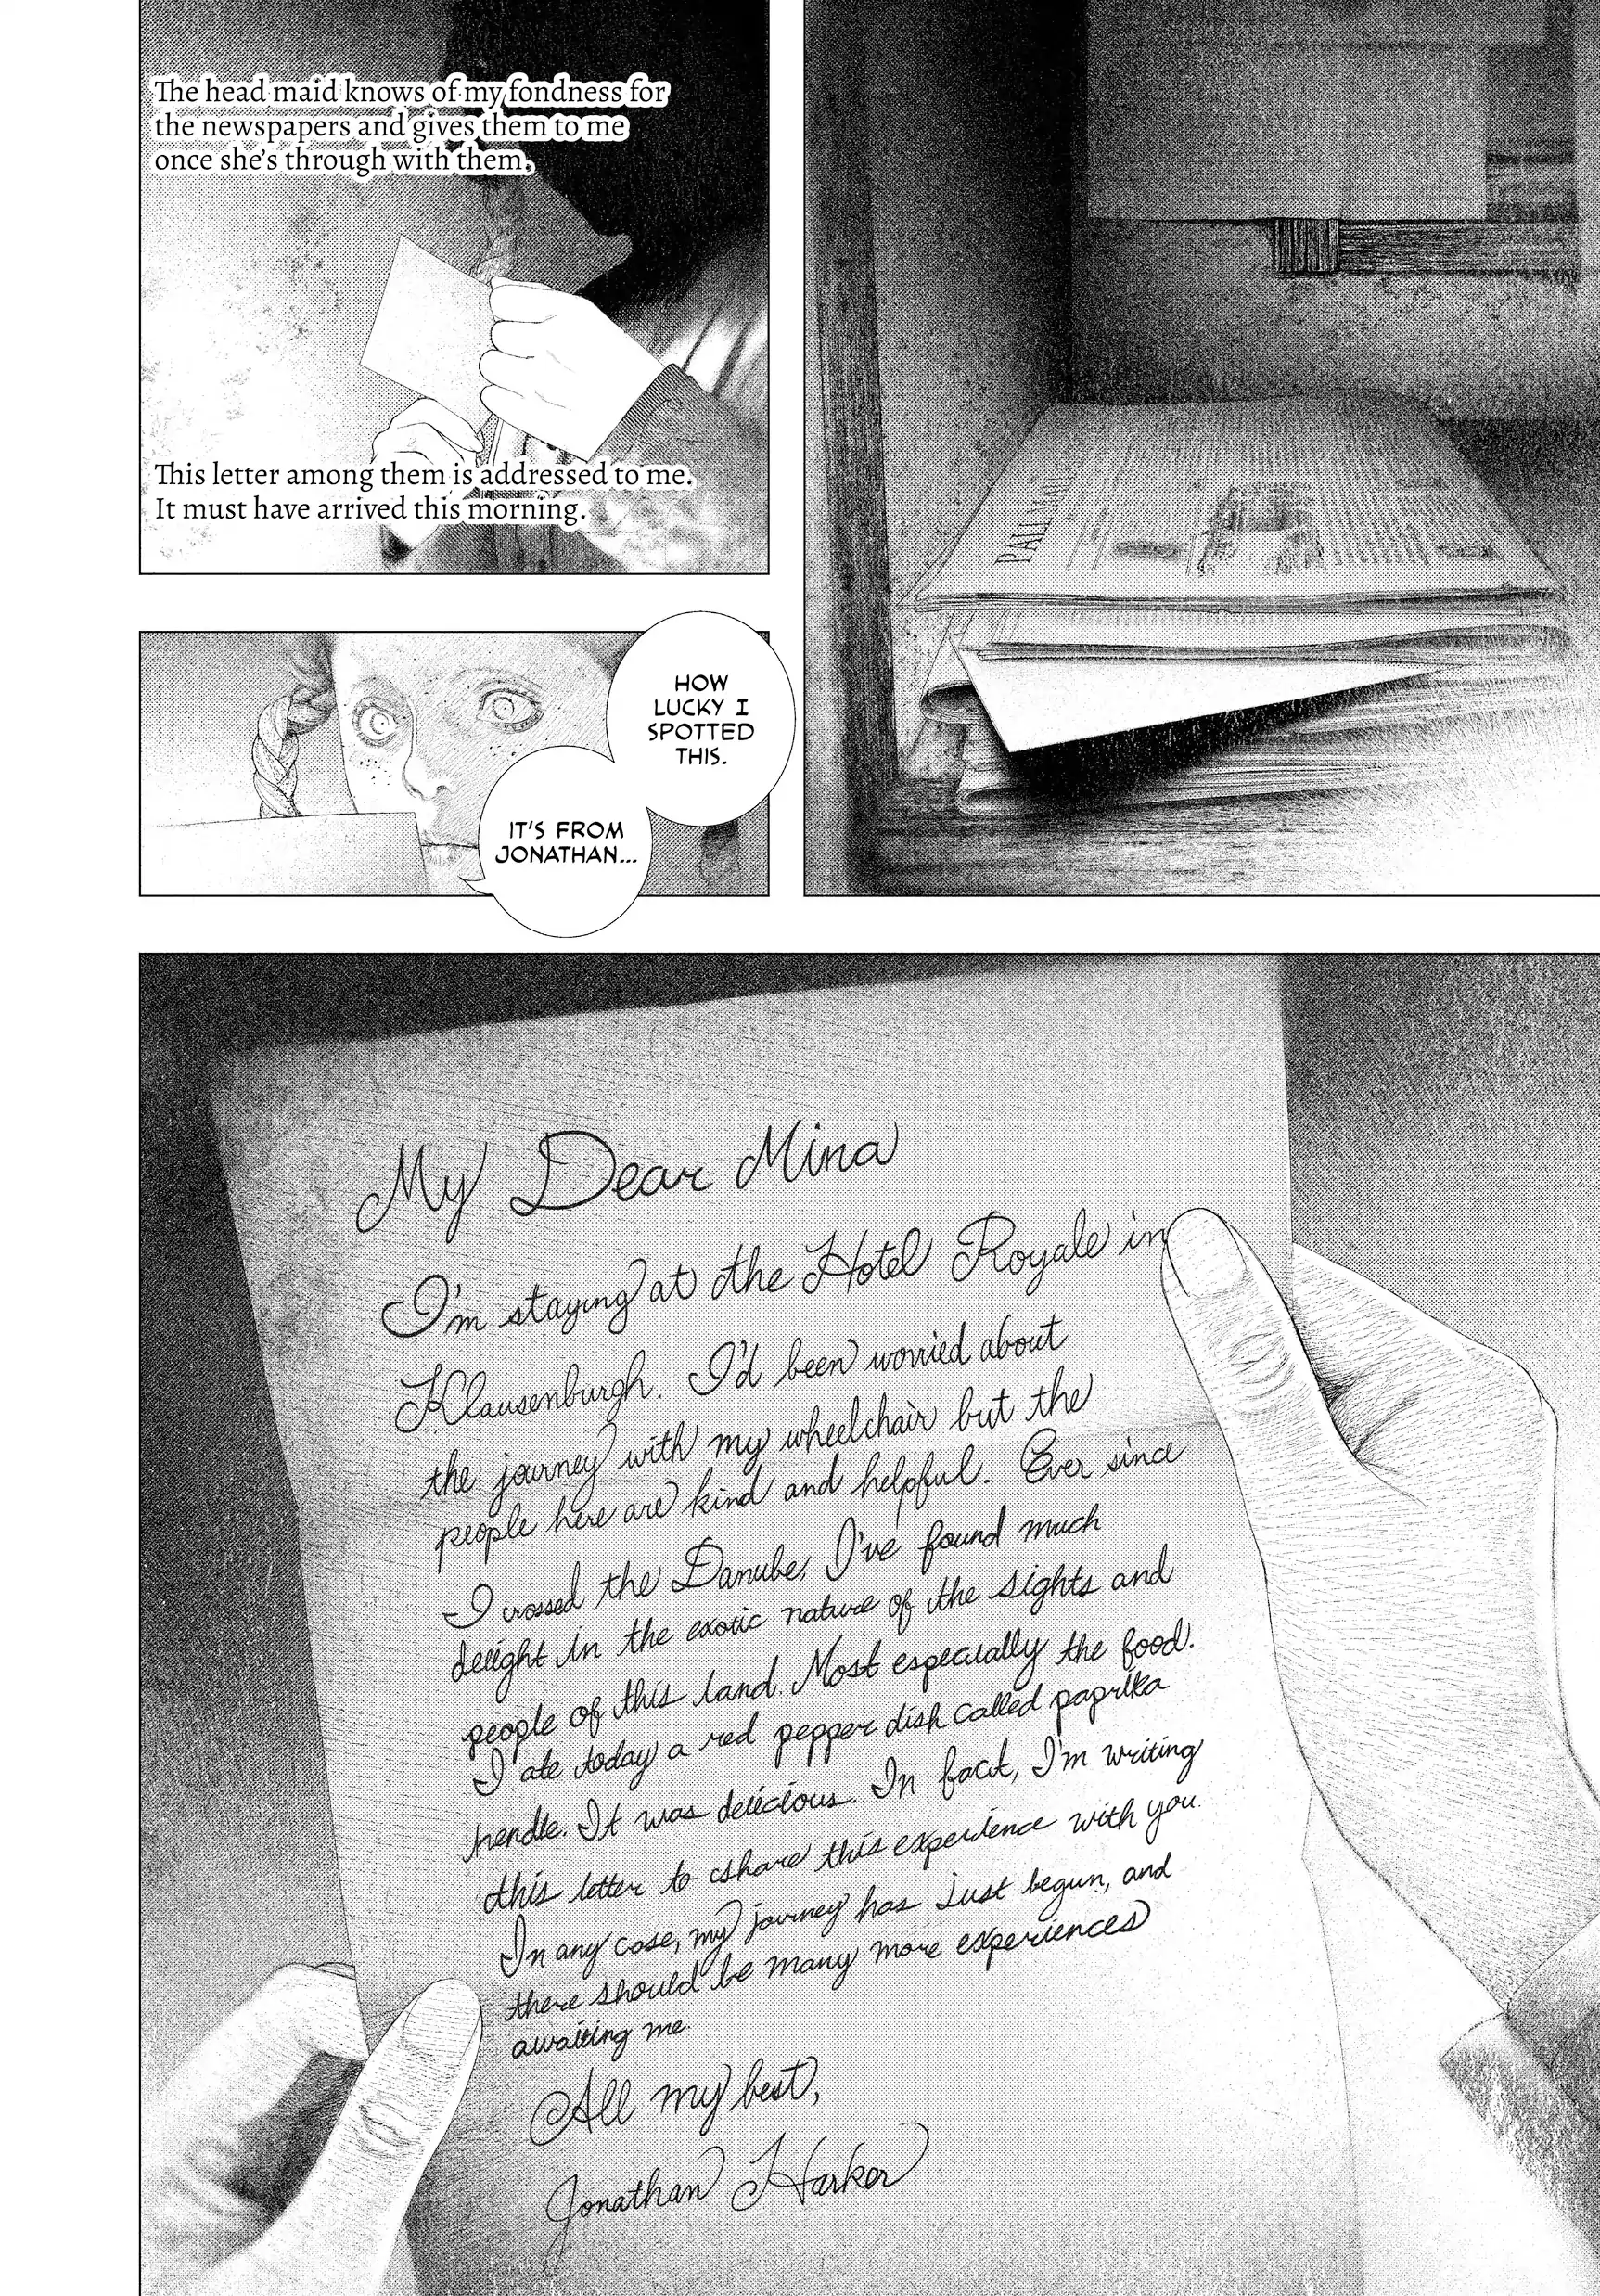 PALL
The head maid knows of my fondness for
the newspapers and gives them to me
once she's through with them.
This letter among them is addressed to me.
It must have arrived this morning.
HOW
LUCKY I
SPOTTED
THIS.
IT'S FROM
JONATHAN...
My Dear Mina
I'm staying at the Hotel Royale in
Klausenburgh. I'd been worried about
the journey with my wheelchair but the
people here are kind and helpful. Ever since
I crossed the Danube, I've found much
delight in the exotic nature of the sights and
people of this land. Most especially the food.
I ate today a red pepper dish called paprika
hendle. It was delicious. In fact, I'm writing
this letter to share this experience with you.
In any case, my journey has just begun, and
there should be many more experiences
awaiting me.
All my best,
Jonathan Harker